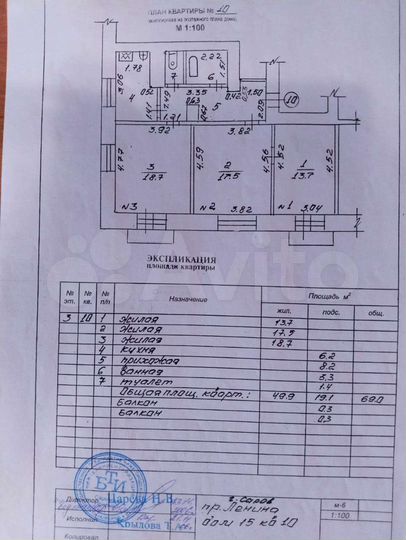 ПЛАН КВАРТИРЫ № 10
М 1:100
1.78
2.22
1.51
3.06
0.52
7
6
4
1.49
3.35
0.63
0.42
1.50
5
2.09
10
1.41
1.21
0.62
3.92
3.82
4.77
3
18.7
4.59
2
17.5
4.56
4.52
1
13.7
4.52
№3
№2
3.82
№1
3.04
ЭКСПЛИКАЦИЯ
площади квартиры
№ эт.
№ кв.
№ п/п
Назначение
Площадь м²
жил.
подс.
общ.
3 10 1 жилая 13.7
2 жилая 17.5
3 жилая 18.7
4 кухня 6.2
5 прихожая 8.2
6 ванная 3.3
7 туалет 1.4
Общая площ. кварт.: 49.9 19.1 69.0
Балкон 0.3
Балкон 0.3
БТИ
Директор Царева Н.В.
Исполнил Крылова Т.
Копировал
г. Саров
пр. Ленина
дом 15 кв 10
м-б
1:100
Avito